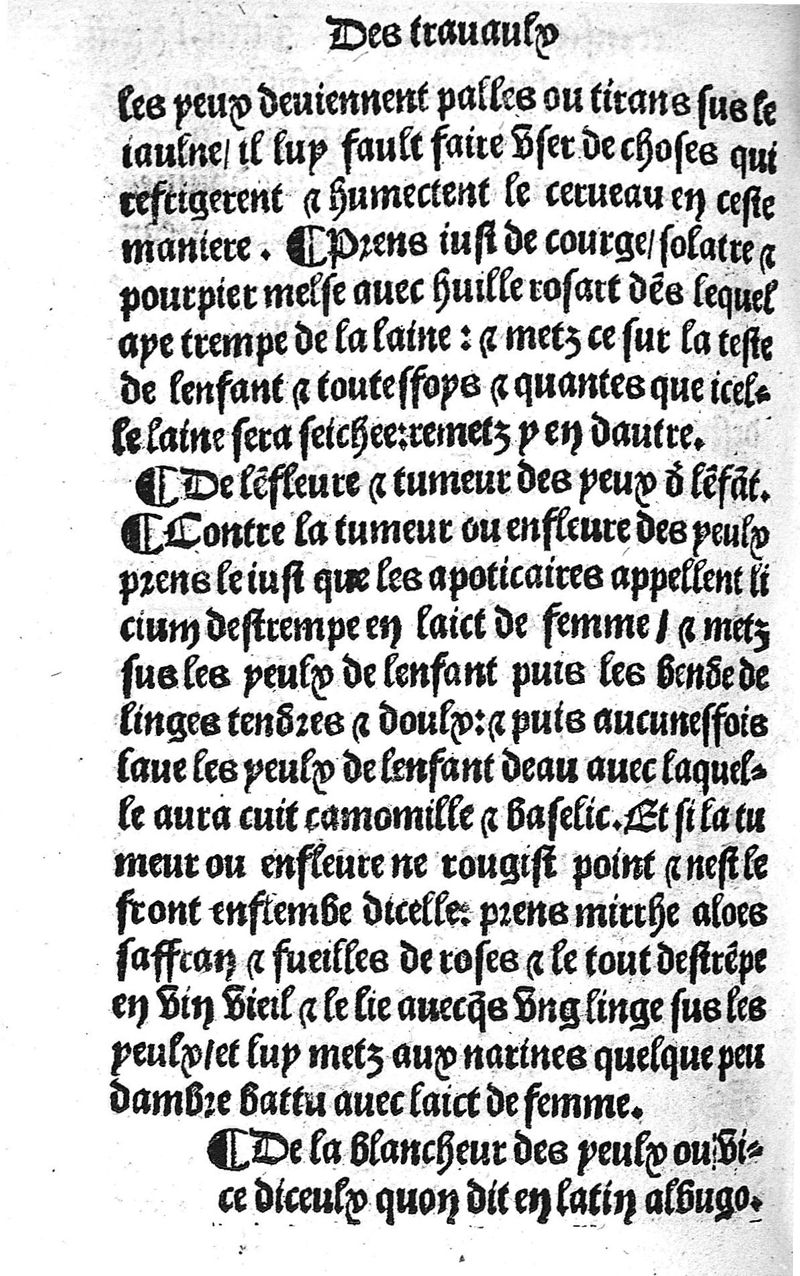 Des trauaulx
les yeux deuiennent palles ou tirans sus le
iaulne/ il luy fault faire vser de choses qui
refrigerent ⁊ humectent le cerueau en ceste
maniere. ¶Prens iust de courge/ solatre ⁊
pourpier melse auec huille rosart dẽs lequel
aye trempe de la laine : ⁊ metz ce sur la teste
de lenfant ⁊ toutesfoys ⁊ quantes que icel-
le laine sera seichee:remetz y en dautre.
¶De lẽfleure ⁊ tumeur des yeux d̃ lẽfãt.
¶Contre la tumeur ou enfleure des yeulx
prens le iust que les apoticaires appellent li
cium destrempe en laict de femme / ⁊ metz
sus les yeulx de lenfant puis les bende de
linges tendres ⁊ doulx:⁊ puis aucunesfois
laue les yeulx de lenfant deau auec laquel-
le aura cuit camomille ⁊ baselic. Et si la tu
meur ou enfleure ne rougist point ⁊ nest le
front enflembe dicelle: prens mirrhe aloes
saffran ⁊ fueilles de roses ⁊ le tout destrẽpe
en vin vieil ⁊ le lie auecq̃s vng linge sus les
yeulx/et luy metz aux narines quelque peu
dambre battu auec laict de femme.
¶De la blancheur des yeulx ou vi-
ce diceulx quon dit en latin albugo.